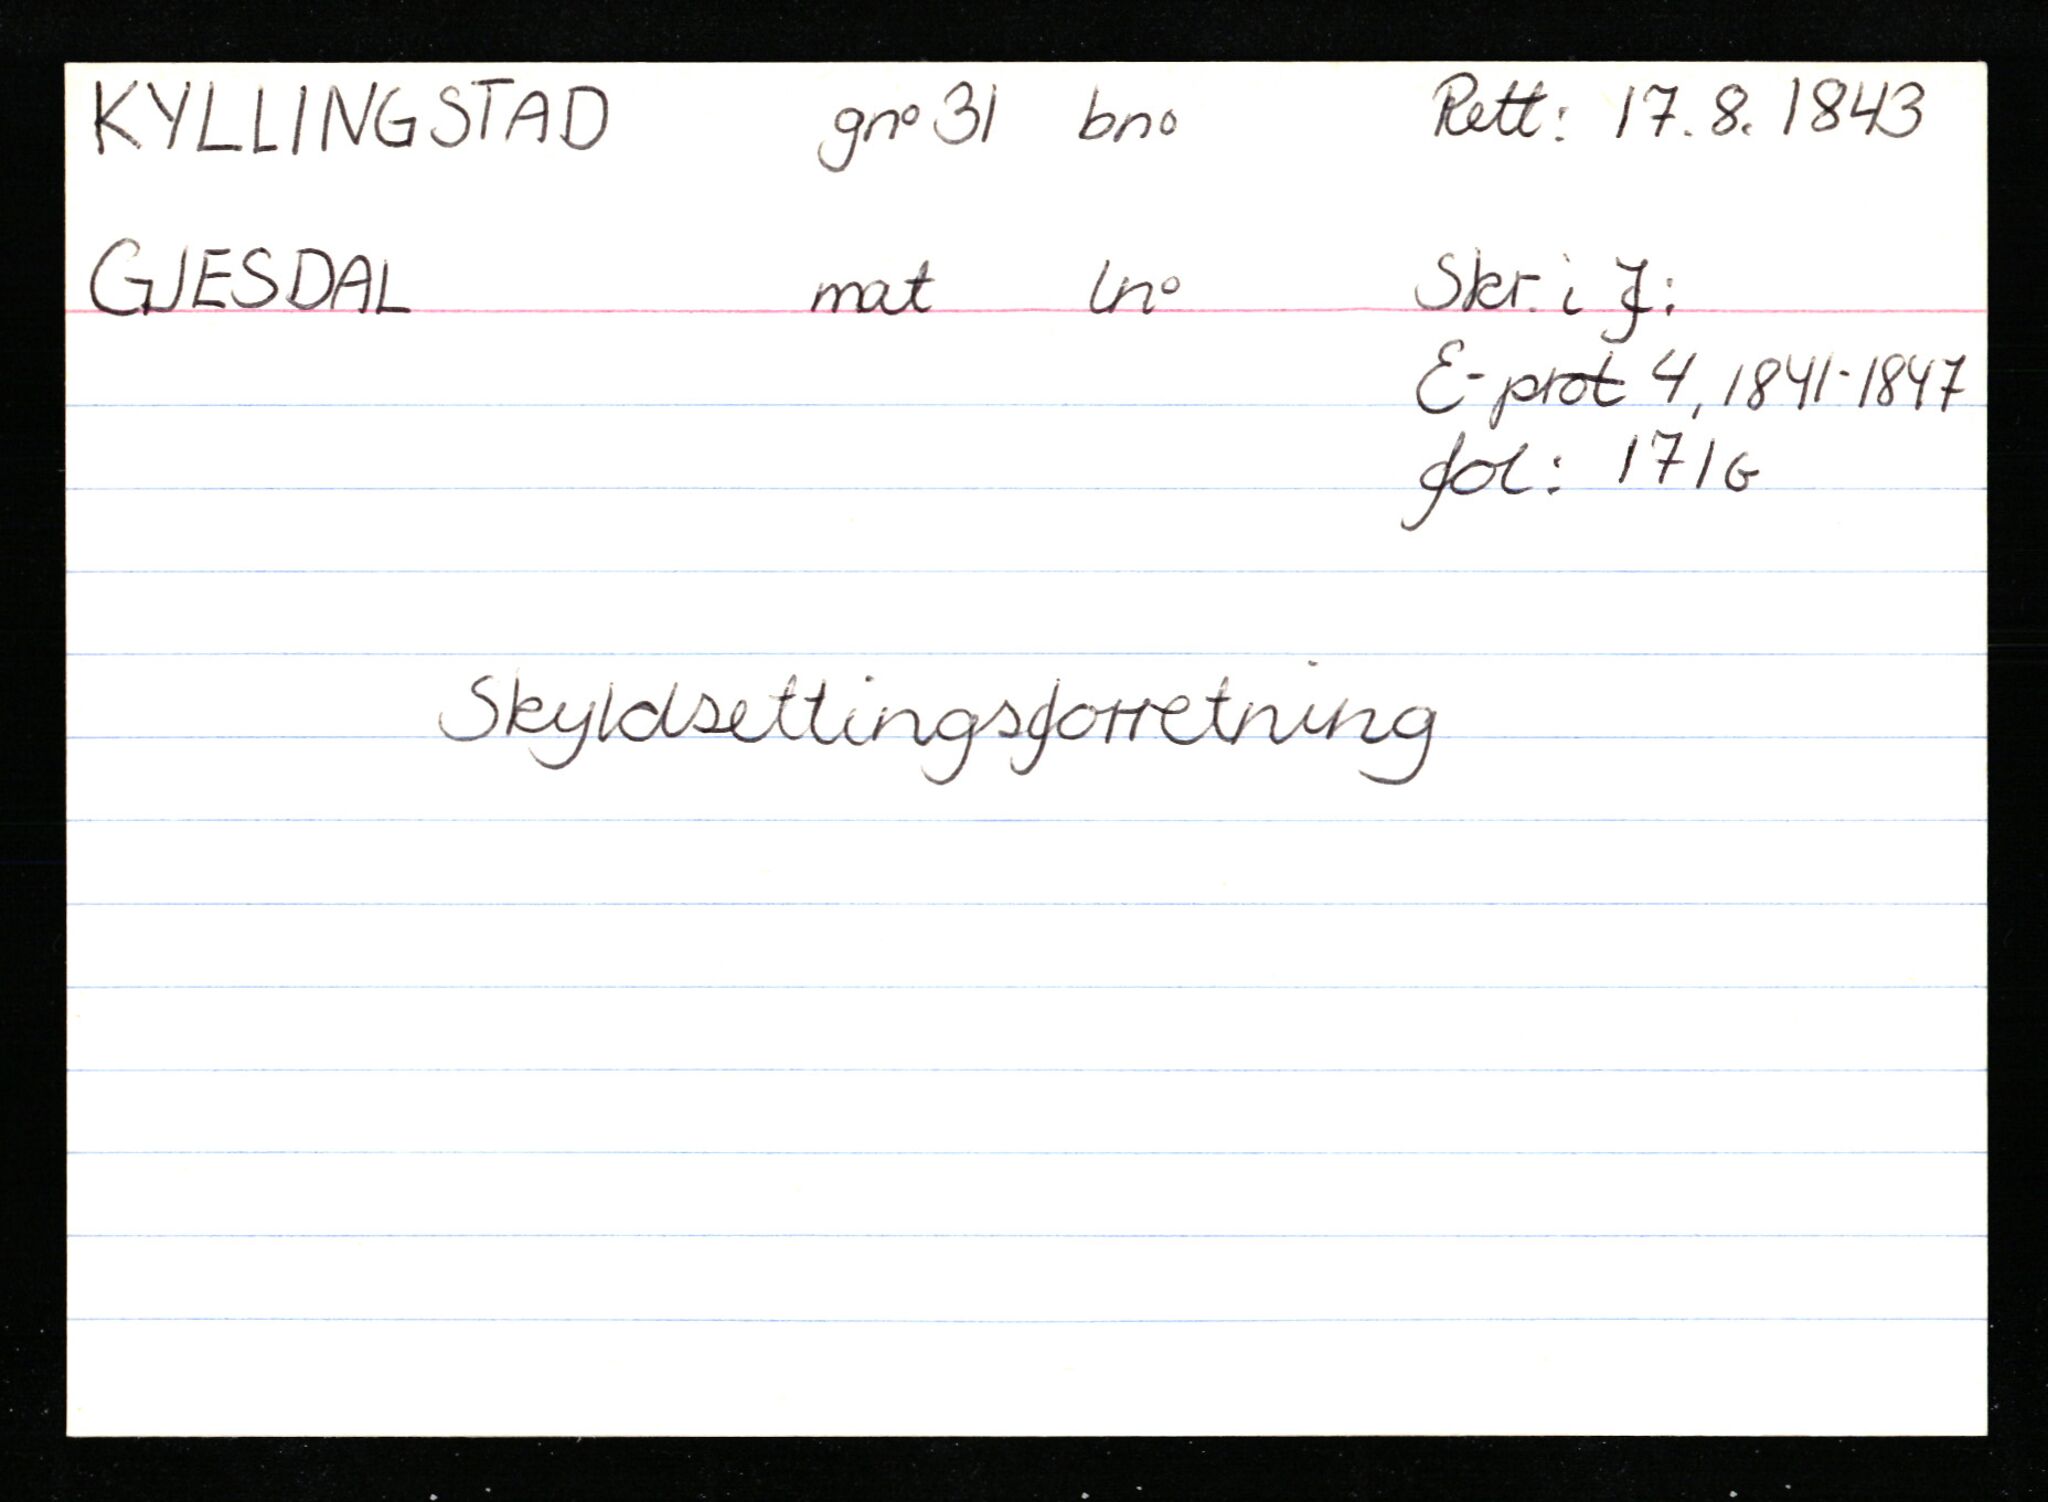 KYLLINGSTAD gno 31 bno Rett: 17.8.1843
GJESDAL mat lno Skr. i J:
E-prot 4, 1841-1847
fol: 171G
Skyldsettingsforretning